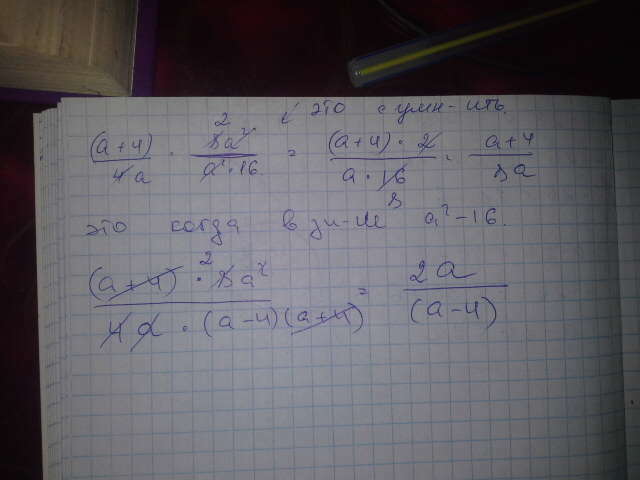 это с умн-ить.
(a+4)/4a · 2 8a²/a²·16 = (a+4)·2/a·16 8 = a+4/8a
это когда в зн-ле a²-16.
(a+4)·2 8a²/4a·(a-4)(a+4) = 2a/(a-4)